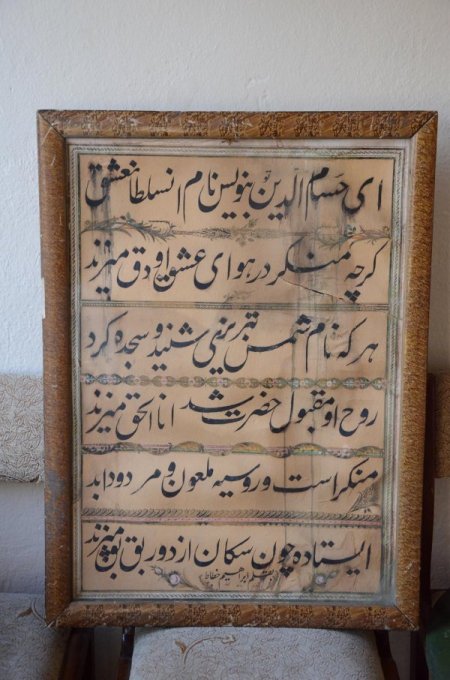 ای حسام الدین بنویس نام انسلطان عشق
کرچه منکر در هوای عشق او دق میزند
هر که نام شمس تبریزی شنید و سجده کرد
روح او مقبول حضرت شد انا الحق میزند
منکر است و روسیه ملعون و مردود ابد
ایستاده چون سکان از دور بق بق میزند
ابراهیم